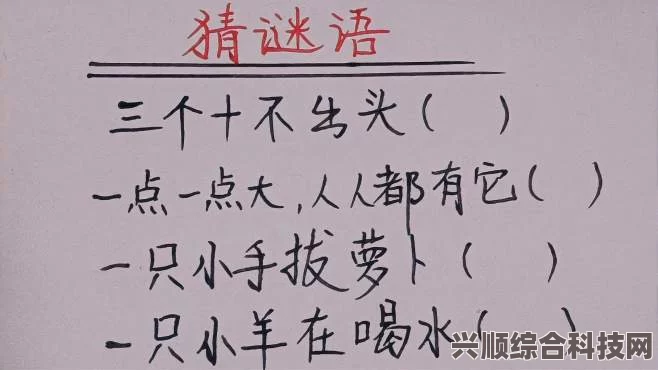 猜谜语
三个十不出头( )
一点一点大,人人都有它( )
一只小手拔萝卜( )
一只小羊在喝水( )
兴顺综合科技网